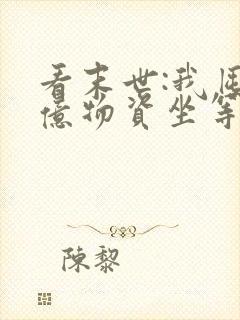 看末世:我囤
億物資坐等
陳黎